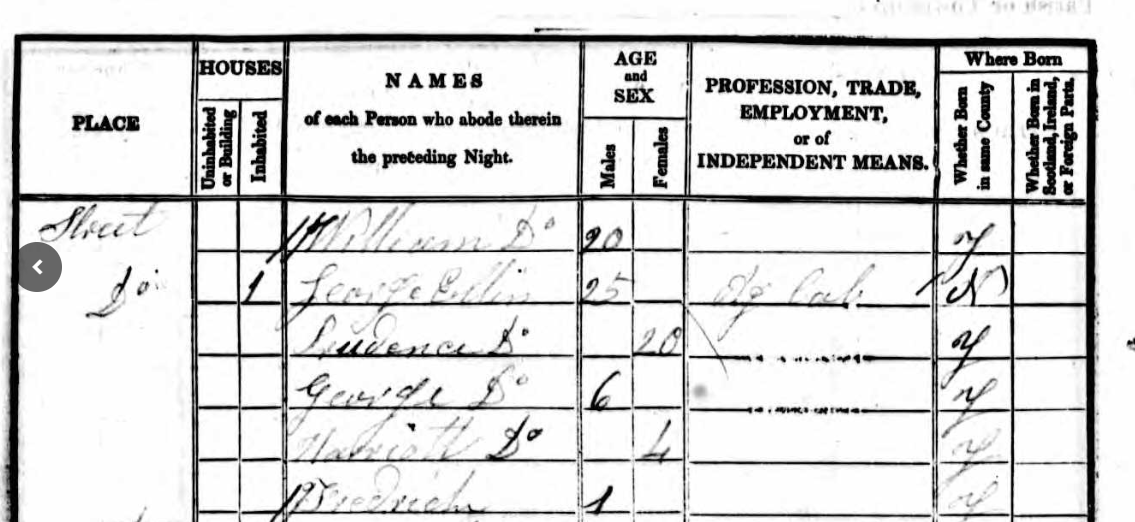 HOUSES
AGE
and
SEX
Where Born
PLACE
Uninhabited
or Building
Inhabited
NAMES
of each Person who abode therein
the preceding Night.
Males
Females
PROFESSION, TRADE,
EMPLOYMENT,
or of
INDEPENDENT MEANS.
Whether Born
in same County
Whether Born in
Scotland, Ireland,
or Foreign Parts.
Street William Do 20 Y
Do 1 George 25 Ag Lab N
Prudence Do 20 Y
George Do 6 Y
Harriott Do 4 Y
Fredrick 1 Y